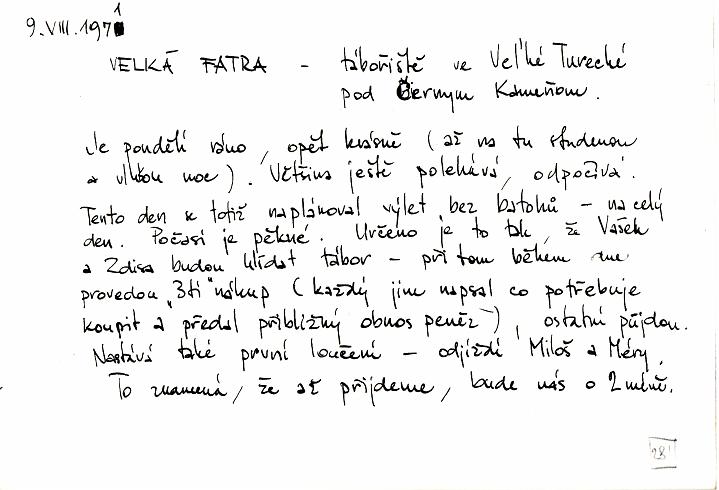 9.VIII.1971
VELKÁ FATRA - tábořiště ve Veľké Turecké
pod Čerным Kameňom.
Je pondělí ráno, opět krásně (až na tu studenou
a vlhkou noc). Většina ještě polehává, odpočívá.
Tento den se totiž naplánoval výlet bez batohů - na celý
den. Počasí je pěkné. Určeno je to tak, že Vašek
a Zdisa budou hlídat tábor - při tom během dne
provedou "3tí" nákup (každý jim napsal co potřebuje
koupit a předal přibližný obnos peněz), ostatní půjdou.
Nastává také první loučení - odjíždí Miloš a Méry.
To znamená, že až přijdeme, bude nás o 2 méně.
28